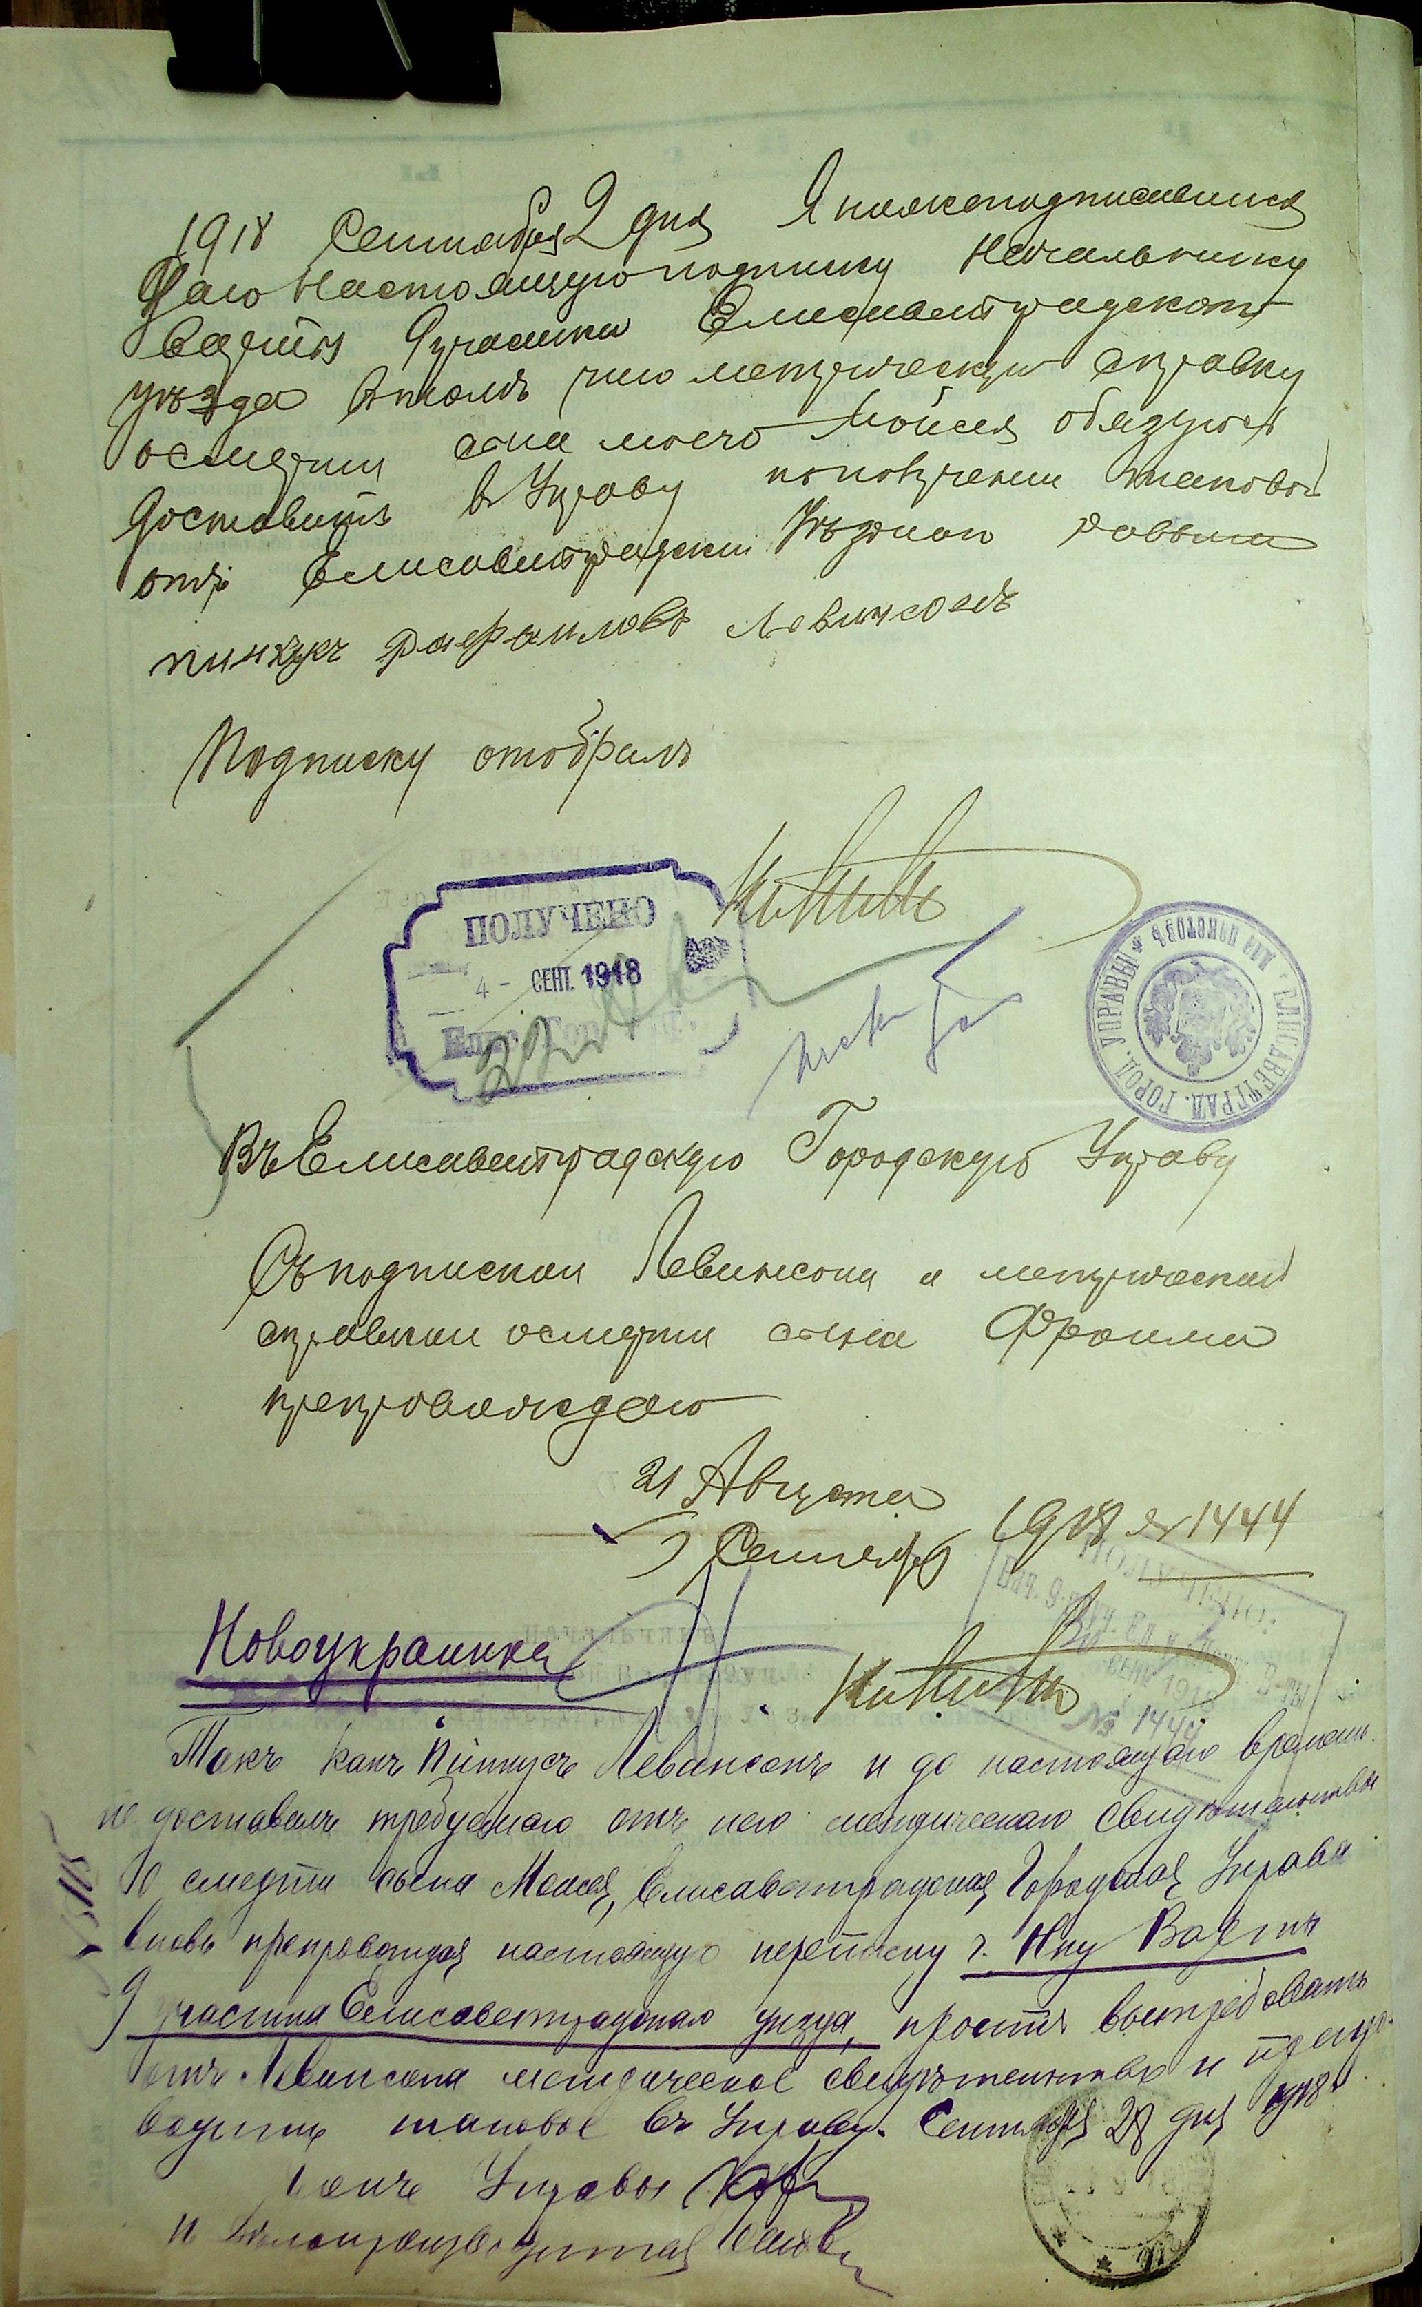 1918 Сентября 2 дня Я нижеподписавшийся
Даю настоящую подписку Начальнику
Варты 9 участка Елисаветградскаго
уѣзда в томъ что метрическую справку
о смерти сына моего Мойсея обязуюсь
доставить в Управу по получении таковой
отъ Елисаветградскаго Уѣзднаго раввина
пинкус рафаиловъ Левинсонъ
Подписку отобралъ
ПОЛУЧЕНО
4 - СЕНТ. 1918
ЕЛИСАВЕТГРАД. ГОРОД. УПРАВЫ
Въ Елисаветградскую Городскую Управу
Съ подпиской Левинсона и метрической
справкой о смерти сына Фроима
препровождаю
21 Августа
3 Сентября 1918 № 1444
Новоукраинка
№ 1444
Такъ какъ Пинкусъ Левинсонъ и до настоящаго времени
не доставилъ требуемаго отъ него метрическаго свидѣтельства
о смерти сына Моисея, Елисаветградская Городская Управа
вновь препровождая настоящую переписку г. Нку Варты
9 участка Елисаветградскаго уѣзда, проситъ вытребовать
отъ Левинсона метрическое свидѣтельство и препро-
водить таковое въ Управу. Сентября 28 дня 1918 г.
Членъ Управы
и Дѣлопроизводитель